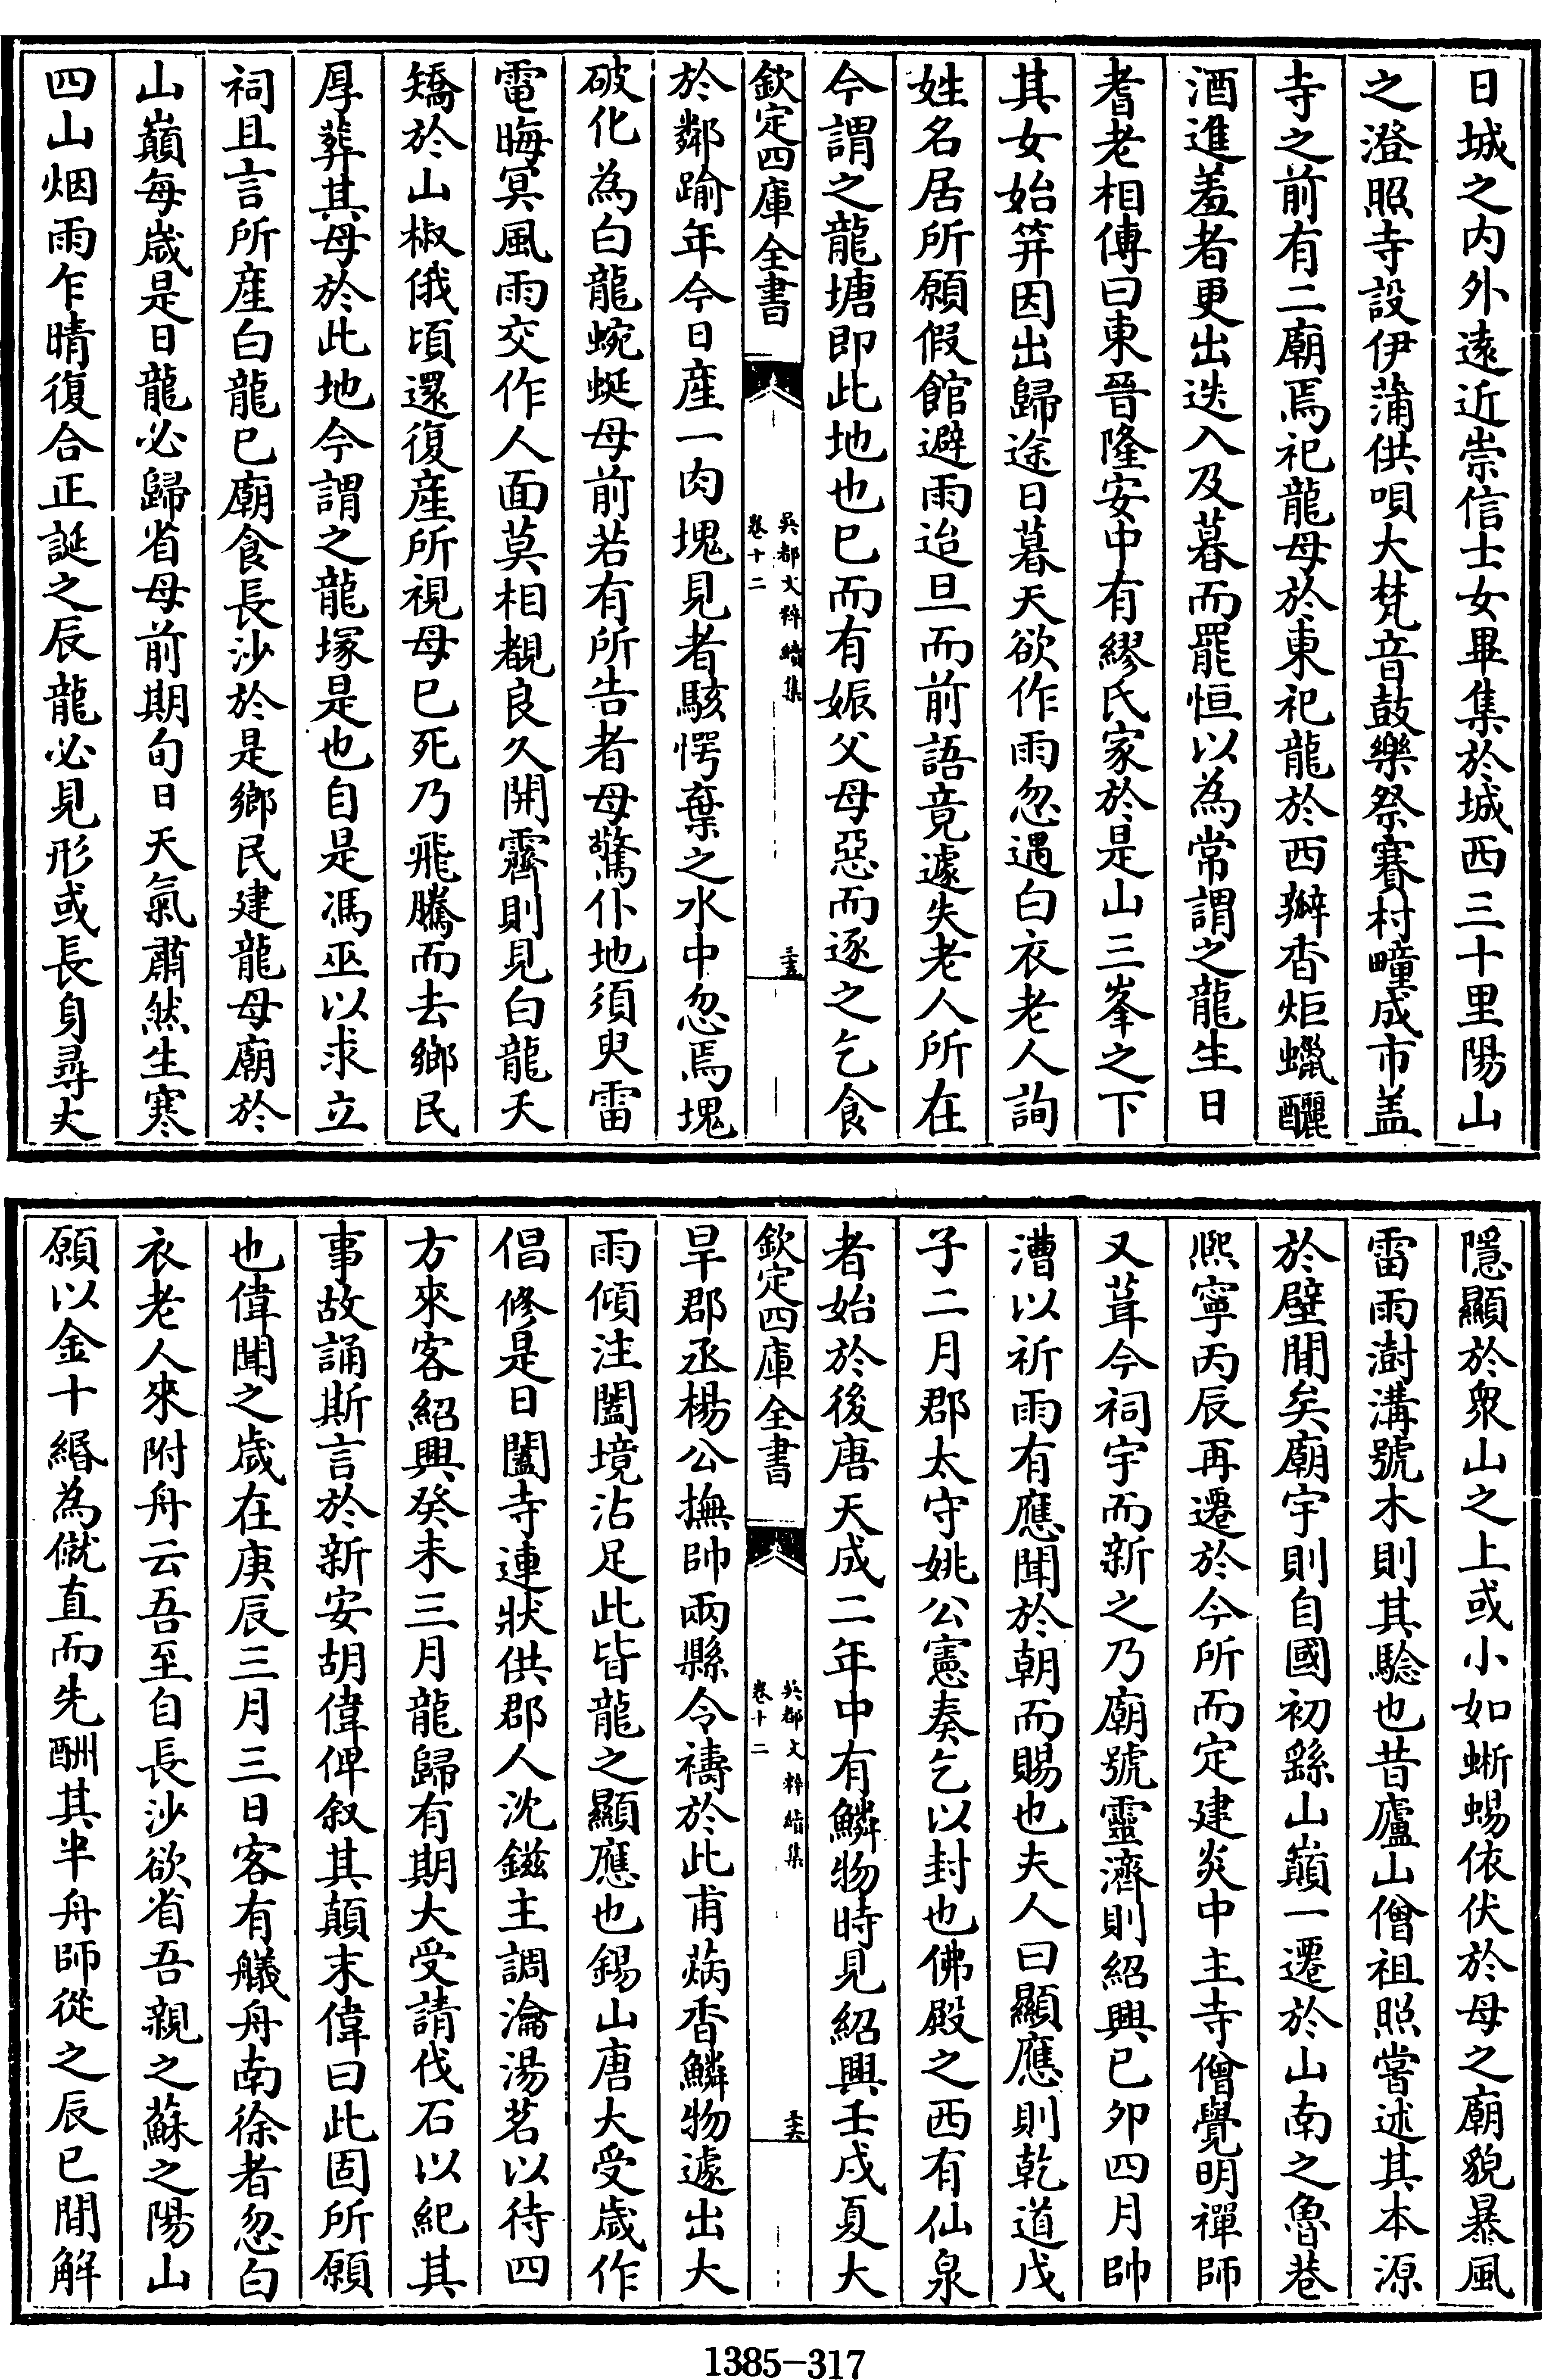 日城之内外逺近崇信士女畢集於城西三十里陽山
之澄照寺設伊蒲供唄大梵音鼓樂祭賽村疃成市盖
寺之前有二廟焉祀龍母於東祀龍於西辦香炬蠟釃
酒進羞者更出迭入及暮而罷恒以為常謂之龍生日
耆老相傳曰東晉隆安中有繆氏家於是山三峯之下
其女始筓因出歸途日暮天欲作雨忽遇白衣老人詢
姓名居所願假館避雨迨旦而前語竟遽失老人所在
今謂之龍塘即此地也已而有娠父母惡而逐之乞食
欽定四庫全書
吳都文粹續集
卷十二
三五
於鄰踰年今日産一肉塊見者駭愕棄之水中忽焉塊
破化為白龍蜿蜒母前若有所告者母驚仆地須臾雷
電晦冥風雨交作人面莫相覩良久開霽則見白龍夭
矯於山椒俄頃還復産所視母已死乃飛騰而去鄉民
厚葬其母於此地今謂之龍塚是也自是馮巫以求立
祠且言所産白龍已廟食長沙於是鄉民建龍母廟於
山巔每嵗是日龍必歸省母前期旬日天氣肅然生寒
四山烟雨乍晴復合正誕之辰龍必見形或長身尋丈
隱顯於衆山之上或小如蜥蜴依伏於母之廟貌暴風
雷雨澍溝號木則其騐也昔廬山僧祖照嘗述其本源
於壁間矣廟宇則自國初繇山巔一遷於山南之魯巷
熈寧丙辰再遷於今所而定建炎中主寺僧覺明禪師
又葺今祠宇而新之乃廟號靈濟則紹興已夘四月帥
漕以祈雨有應聞於朝而賜也夫人曰顯應則乾道戊
子二月郡太守姚公憲奏乞以封也佛殿之西有仙泉
者始於後唐天成二年中有鱗物時見紹興壬戌夏大
欽定四庫全書
吳都文粹續集
卷十二
三六
旱郡丞楊公撫帥兩縣令禱於此甫爇香鱗物遽出大
雨傾注闔境沾足此皆龍之顯應也錫山唐大受嵗作
倡修是日闔寺連狀供郡人沈鎡主調瀹湯茗以待四
方來客紹興癸未三月龍歸有期大受請伐石以紀其
事故誦斯言於新安胡偉俾叙其顛末偉曰此固所願
也偉聞之嵗在庚辰三月三日客有艤舟南徐者忽白
衣老人來附舟云吾至自長沙欲省吾親之蘇之陽山
願以金十緡為僦直而先酬其半舟師從之辰已間解